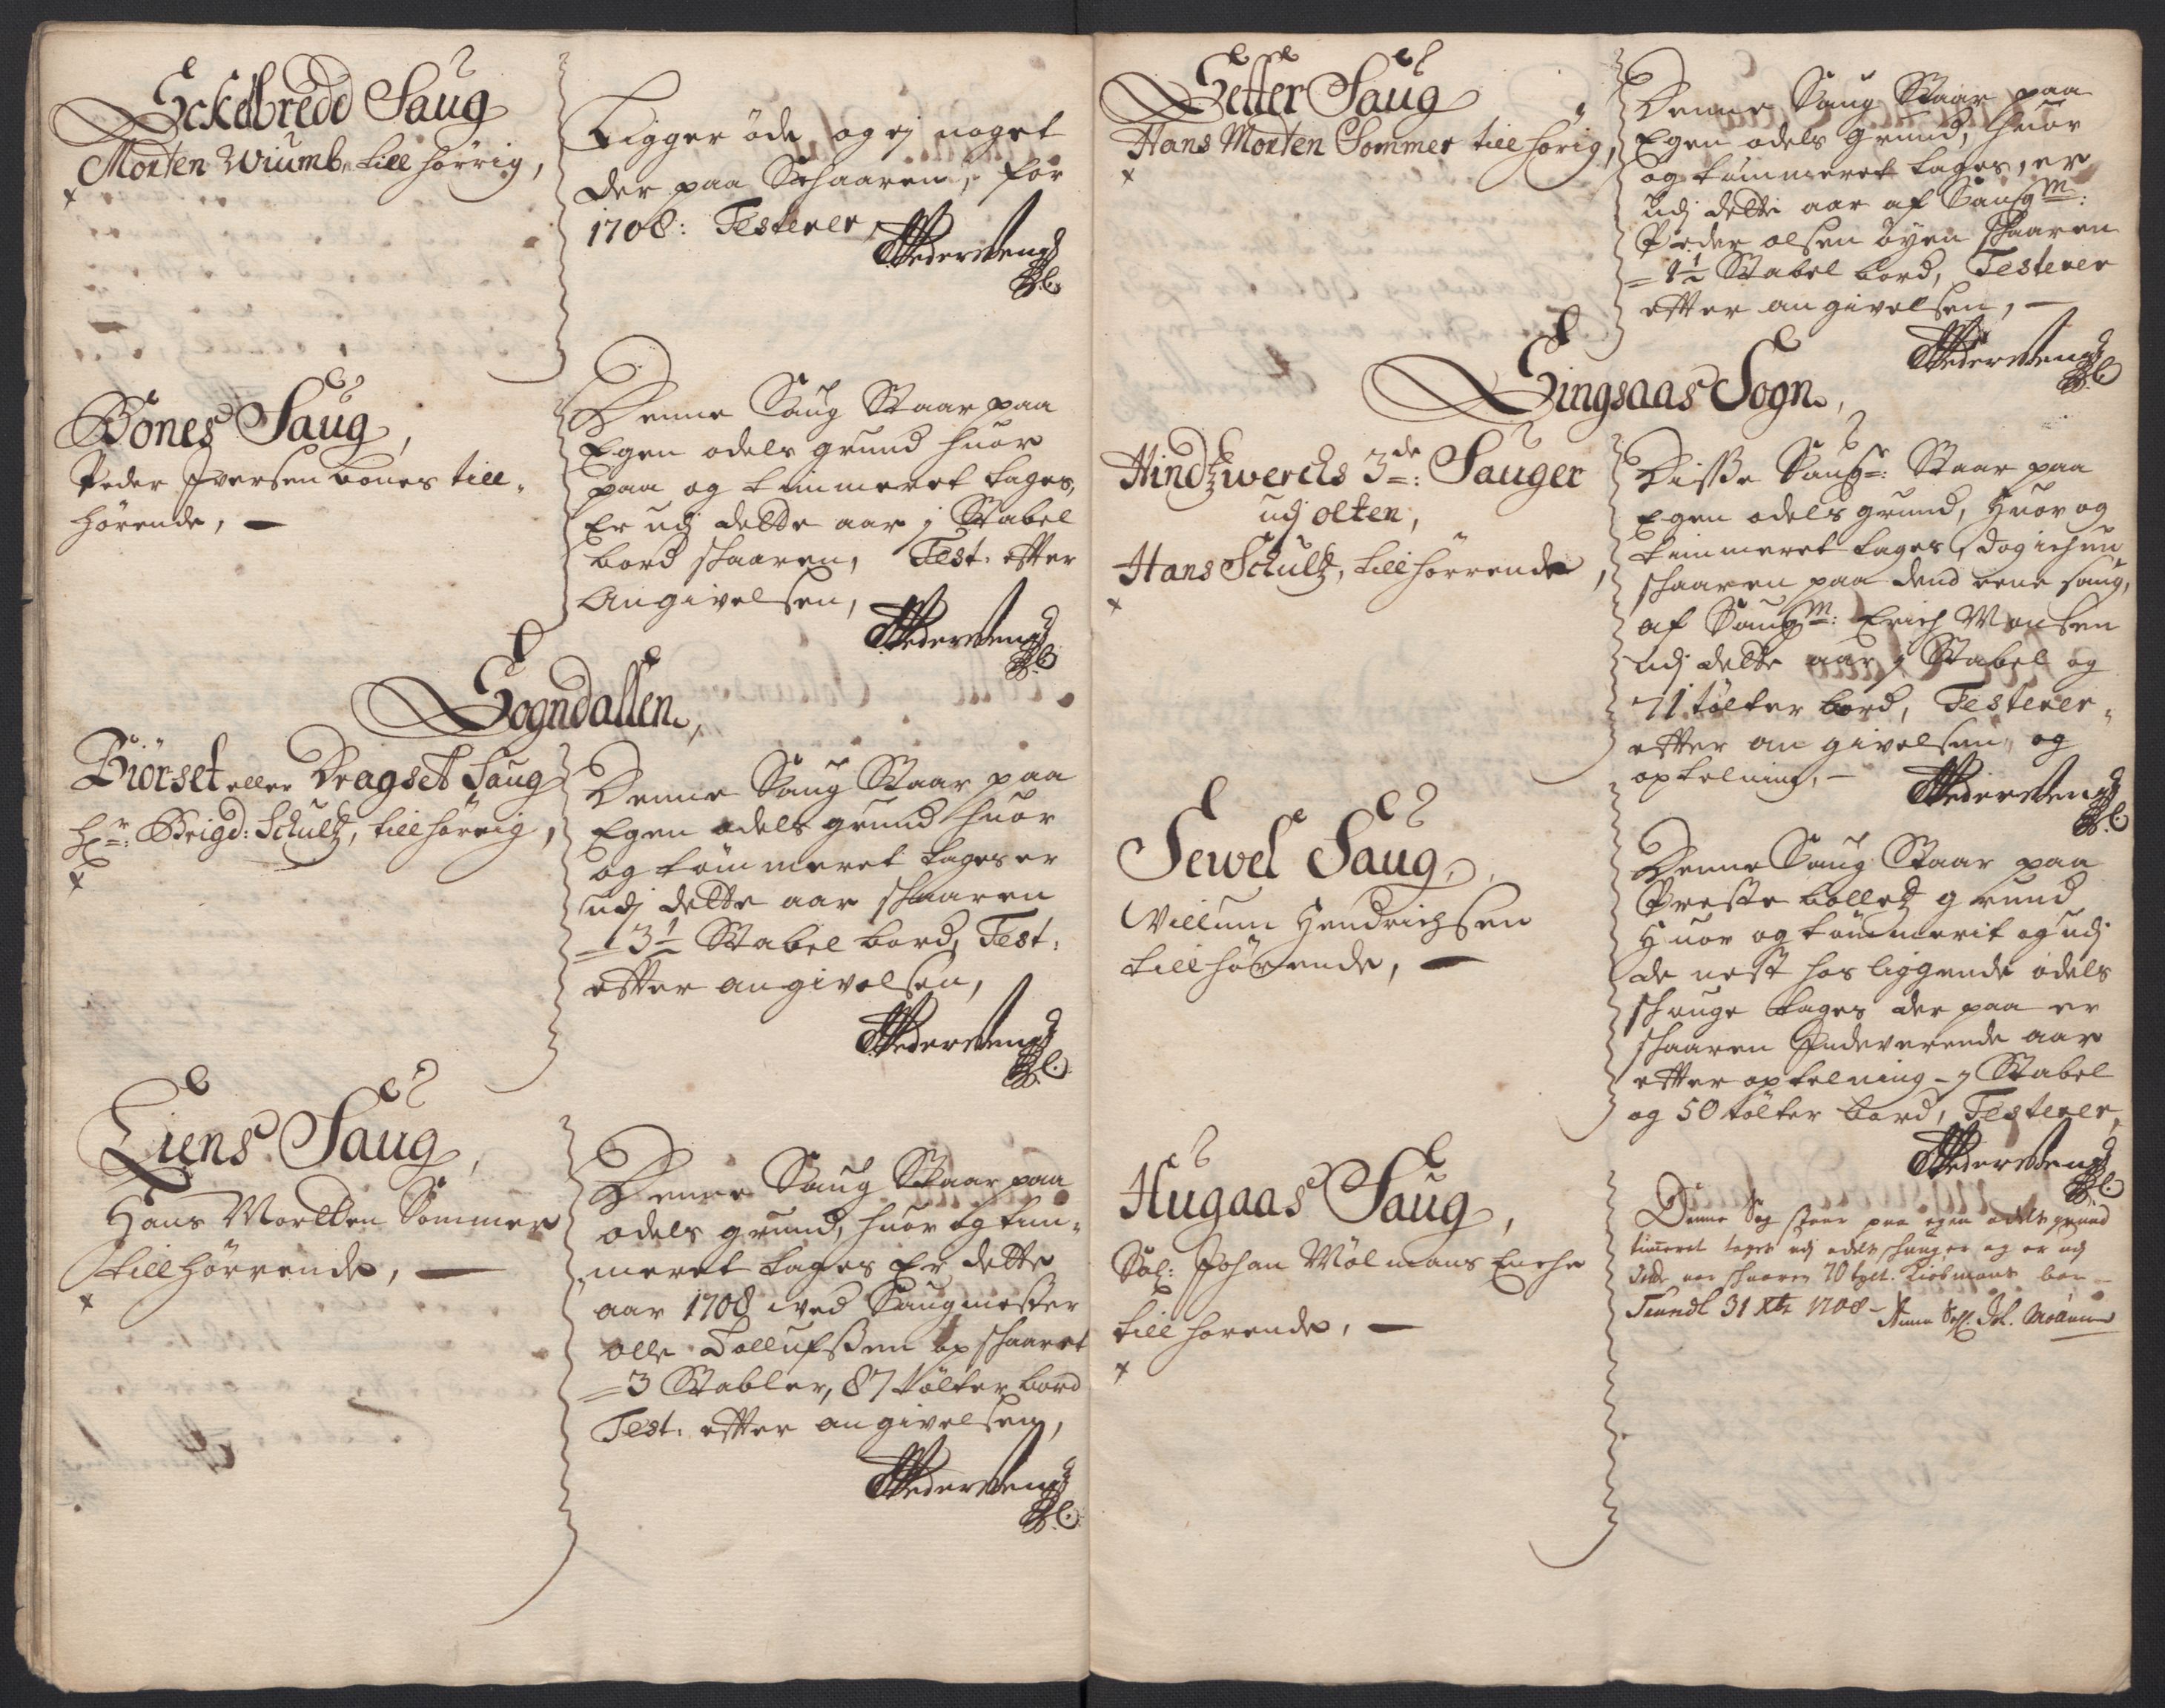 Eckelbredd Saug
Morten Wiumb, till hörrig,
Ligger öde og ej noget
der paa Schaaren, for
1708: Testerer,
Bönes Saug,
Peder Iversen bones till-
hörende,
Denne Saug Staar paa
Egen odels grund huor
paa og timmeret tages,
Er udj dette aar 1 Stabel
bord schaaren, Test. effter
Angivelsen,
Sogndallen,
Biörset eller Dragset Saug
Hr: Brigd: Schultz, till hörrig,
Denne Saug Staar paa
Egen odels grund huor
og tömmeret tages er
udj dette aar schaaren
= 3½ Stabel bord, Test:
effter angivelsen,
Liens Saug,
Hans Mortten Sommer
till hörrende,
Denne Saug Staar paa
odels grund, huor og tim-
meret tages Er dette
aar 1708 ved Saugmester
olle Tollufsen opschaaret
= 3 Stabler, 87 tölter bord
Test. effter angivelsen,
Setter Saug
Hans Morten Sommer till hörig,
Denne Saug Staar paa
Egen odels grund, huor
og tummeret tages, er
udj dette aar af Saugm:
Peder olsen öyen schaaren
= 1½ Stabel bord, Testerer
effter angivelsen,
Singsaas Sogn,
Hindtzwerchs 3de: Sauger
udj olten,
Hans Schultz, till hörrende,
Disse Saugr: Staar paa
Egen odels grund, Huor og
timmeret tages, dog ichun
schaaren paa dend eene saug,
af Saugm: Erich Monsen
udj dette aar 1 Stabel og
71 tölter bord, Testerer,
effter angivelsen, og
optelning,
Sewel Saug,
Willum Hendrichsen
till hörende,
Denne Saug Staar paa
Preste bolletz grund
Huor og tömmerit og udj
de nest hos liggende odels
schouge tages der paa er
schaaren Indeverende aar
effter optelning 1 Stabel
og 50 tölter bord, Testerer,
Hugaas Saug,
Sal: Johan Mölmans Enche
till horende,
Denne Sag staar paa egen odels grund
timeret tages udj odels schauger og er udj
dette aar schaaren 70 tylt. Kiobmans bor
Trundh 31 Xbr 1708 - Anna Sal. Joh. Mölmans